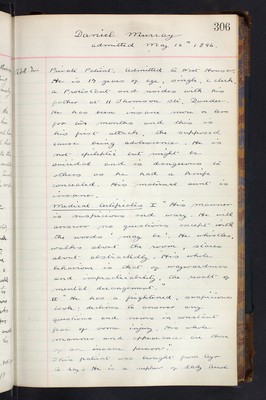 306
Daniel Murray
admitted May 16th 1896.
Private Patient, admitted to West House,
He is 19 years of age, single, a clerk,
a Protestant and resides with his
father at 11 Thomson St., Dundee.
He has been insane more or less
for six months and this is
his first attack, the supposed
cause being adolescence. He is
not epileptic but might be
suicidal and is dangerous to
others as he had a knife
concealed. His maternal aunt is
insane.
Medical Certificates I "His manner
is suspicious and wary. He will
answer no questions except with
the words 'may be'. He whistles,
walks about the room, stares
about abstractedly. His whole
behaviour is that of waywardness
and impracticability, the result of
mental derangement."
II "He has a frightened, suspicious
look; declines to answer any
questions and seems in constant
fear of some injury. His whole
manner and appearance are those
of an insane person."
This patient was brought from
to-day. He is a